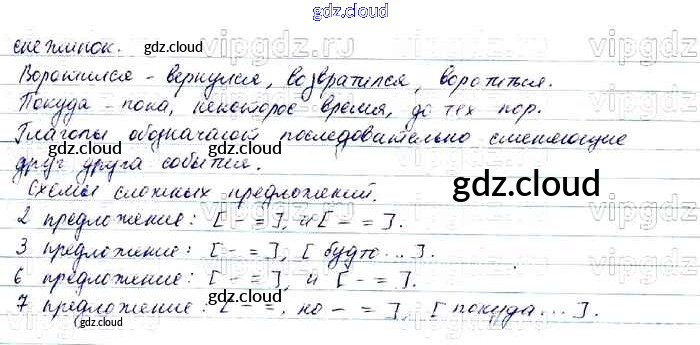 gdz.cloud
снежинок. gdz.cloud vipgdz.ru
Воротился - вернулся, возвратился, воротиться.
Покуда - пока, некоторое время, до тех пор.
gdz.cloud gdz.cloud
Глаголы обозначают последовательно сменяющие
друг друга события.
gdz.cloud
Схемы сложных предложений.
2 предложение: [ - = ], и [ - = ].
3 предложение: [ - = ], [ будто... ].
6 предложение: [ - = ], и [ - = ].
gdz.cloud gdz.cloud
7 предложение: [ - = , но - = ], [ покуда... ].
gdz.cloud